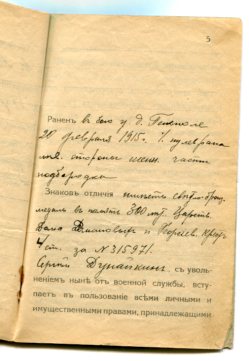 5
Раненъ въ бою у д.
20 февраля 1915 г.
лѣв. стороны части
подбородка
Знаковъ отличія имѣетъ свѣтло-брон.
медаль въ память 300 лѣт. Царств.
Дома и Георгiев. крестъ
4 ст. за № 315971.
Сергѣй , съ уволь-
неніемъ нынѣ отъ военной службы, всту-
паетъ въ пользованіе всѣми личными и
имущественными правами, принадлежащими